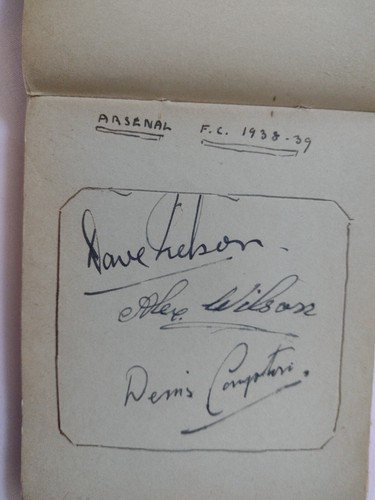 ARSENAL F.C. 1938-39
Dave Nelson.
Alex Wilson
Denis Compton.